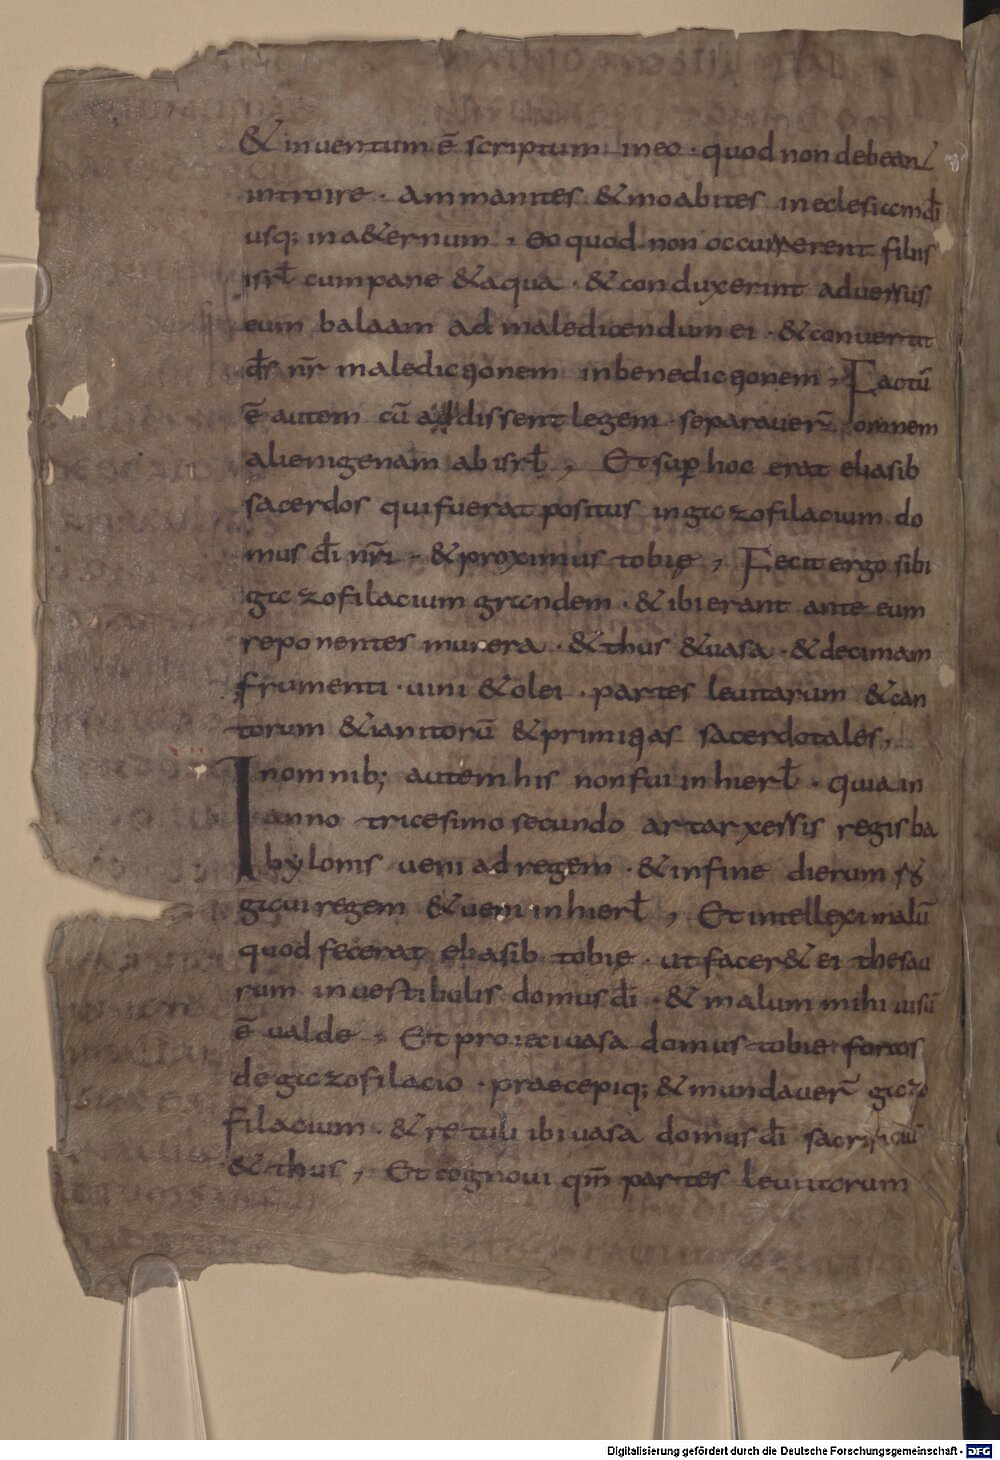 & inuentum ē scriptum in eo · quod non debeant
introire · ammanites & moabites in eclesiam dī
usq; in a&ernum , eo quod non occurrerent filiis
isrł cum pane & aqua · & conduxerint aduersus
eum balaam ad maledicendum ei · & conuertit
dś nr̄ maledictionem in benedictionem , Factū
ē autem cū audissent legem · separauer̄ omnem
alienigenam ab isrł , Et sup hoc erat eliasib
sacerdos qui fuerat positus in gazofilacium do
mus dī nr̄i · & proximus tobię , Fecit ergo sibi
gazofilacium grandem · & ibi erant ante eum
reponentes munera · & thus & uasa · & decimam
frumenti · uini & olei · partes leuitarum & can
torum & ianitorū & primitias sacerdotales ,
In omnib; autem his non fui in hierł · quia in
anno tricesimo secundo artarxessis regis ba
bylonis ueni ad regem · & in fine dierum ro
gaui regem & ueni in hierł , Et intellexi malū
quod fecerat eliasib tobię · ut facer& ei thesau
rum in uestibulis domus dī · & malum mihi uisū
ē ualde , Et proieci uasa domus tobię foras
de gazofilacio · praecepiq; & mundauer̄ gazo
filacium · & retuli ibi uasa domus dī sacrificiū
& thus , Et cognoui qm̄ partes leuitarum
Digitalisierung gefördert durch die Deutsche Forschungsgemeinschaft - DFG